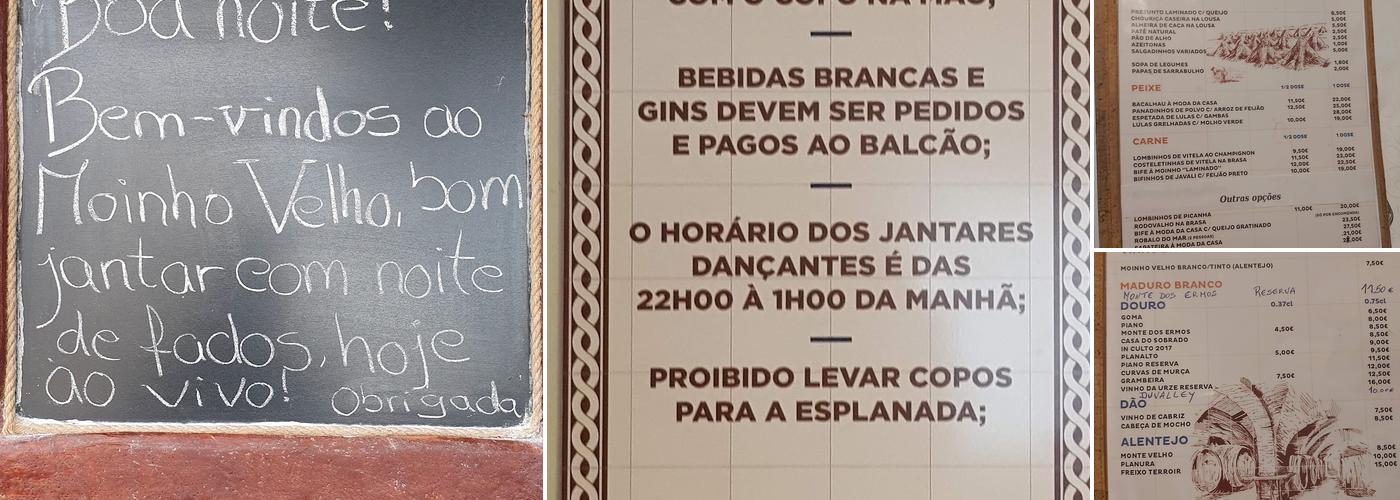 Boa noite!
Bem-vindos ao
Moinho Velho, bom
jantar com noite
de fados, hoje
ao vivo! Obrigada
COM O COPO NA MÃO;
BEBIDAS BRANCAS E
GINS DEVEM SER PEDIDOS
E PAGOS AO BALCÃO;
O HORÁRIO DOS JANTARES
DANÇANTES É DAS
22H00 À 1H00 DA MANHÃ;
PROIBIDO LEVAR COPOS
PARA A ESPLANADA;
PRESUNTO LAMINADO C/ QUEIJO 6,50€
CHOURIÇA CASEIRA NA LOUSA 5,00€
ALHEIRA DE CAÇA NA LOUSA 5,50€
PATÉ NATURAL 2,50€
PÃO DE ALHO 2,50€
AZEITONAS 1,00€
SALGADINHOS VARIADOS 5,00€
SOPA DE LEGUMES 1,80€
PAPAS DE SARRABULHO 2,00€
PEIXE 1/2 DOSE 1 DOSE
BACALHAU À MODA DA CASA 11,50€ 22,00€
PANADINHOS DE POLVO C/ ARROZ DE FEIJÃO 12,50€ 25,00€
ESPETADA DE LULAS C/ GAMBAS 28,00€
LULAS GRELHADAS C/ MOLHO VERDE 10,00€ 19,00€
CARNE 1/2 DOSE 1 DOSE
LOMBINHOS DE VITELA AO CHAMPIGNON 9,50€ 19,00€
COSTELETINHAS DE VITELA NA BRASA 11,50€ 23,00€
BIFE À MOINHO "LAMINADO" 12,00€ 22,50€
BIFINHOS DE JAVALI C/ FEIJÃO PRETO 10,00€ 19,00€
Outras opções
LOMBINHOS DE PICANHA 11,00€ 20,00€
RODOVALHO NA BRASA (SÓ POR ENCOMENDA)
BIFE À MODA DA CASA C/ QUEIJO GRATINADO 23,50€
ROBALO DO MAR (2 PESSOAS) 27,50€
SAPATEIRA À MODA DA CASA
MOINHO VELHO BRANCO/TINTO (ALENTEJO) 7,50€
MADURO BRANCO
MONTE DOS ERMOS RESERVA 11.50€
DOURO 0.37cl 0.75cl
GOMA 6,50€
PIANO 8,00€
MONTE DOS ERMOS 4,50€ 8,50€
CASA DO SOBRADO 9,00€
IN CULTO 2017 9,50€
PLANALTO 5,00€ 11,50€
PIANO RESERVA 12,00€
CURVAS DE MURÇA 12,50€
GRAMBEIRA 7,50€ 16,00€
VINHO DA URZE RESERVA 10.00€
DUVALLEY
DÃO
VINHO DE CABRIZ 7,50€
CABEÇA DE MOCHO 8,50€
ALENTEJO
MONTE VELHO 8,50€
PLANURA 10,00€
FREIXO TERROIR 15,00€